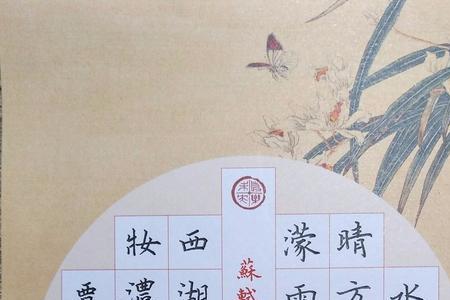 水
晴方
濛雨
蘇軾
西湖
妝濃